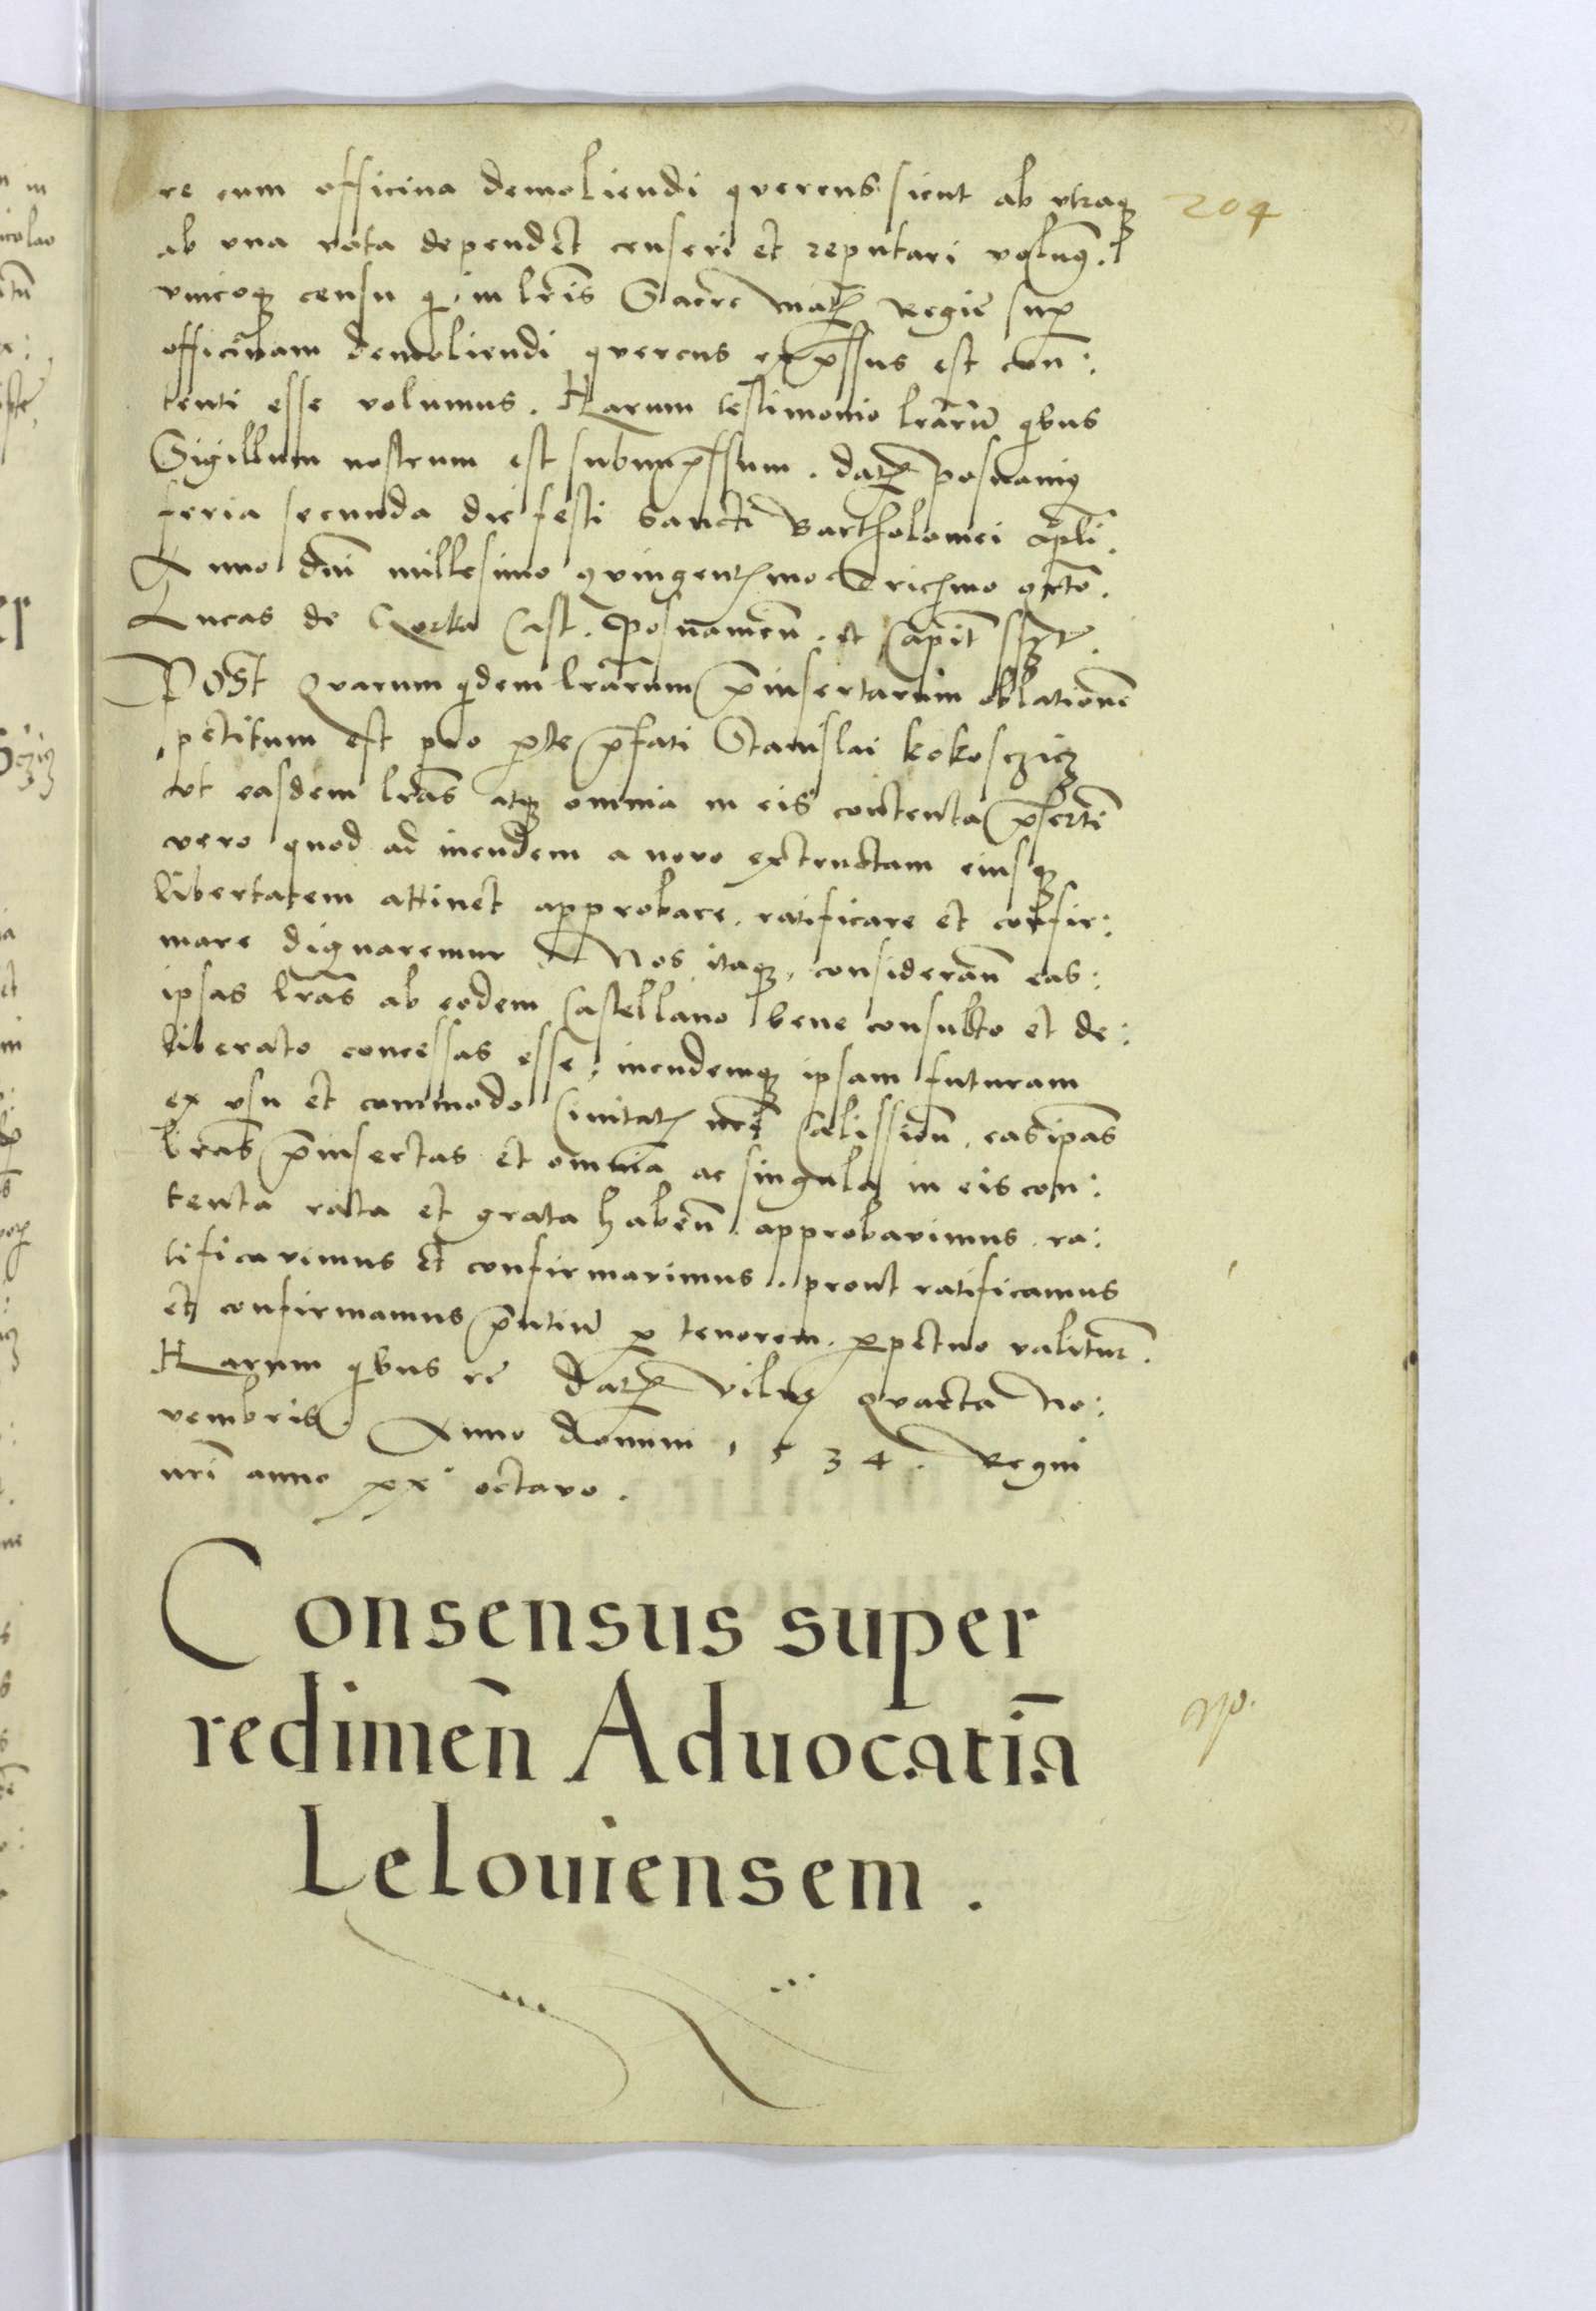 re cum officina demoliendi quercus sicut ab vtraq;
204
ab vna rota dependet censeri et reputari volum9.
vnicoq; censu qi in lr̃is Sacre Mat̃ Regiẽ sup
officinam demoliendi quercus exp̃ssus est con:
tenti esse volumus. Harum testimonio lr̃arũ qibus
Sigillum nostrum est subimp̃ssum. Dat̃ Posnanię
feria secunda die festi Sancti Bartholomei ap̃li.
Anno dñi millesimo quingent̃mo Tricẽmo qrto.
Lucas de Gorka Cast. Posnanieñ. et Capit̃
POSt Quarum qidem lr̃arum p̃insertarum oblationẽ
petitum est pro pte p̃fati Stanislai kokosczicz
vt easdem lr̃as atq; omnia in eis contenta p̃sertĩ
vero quod ad incudem a novo extructam eiusq;
libertatem attinet approbare. ratificare et confir:
mare dignaremur. Nos itaq;. considerañ eas:
ipsas lr̃as ab eodem Castellano bene consulto et de:
liberato concessas esse, incudemq; ipsam futuram
ex vsu et commodo Ciuitat̃ nr̃ę Calissieñ. eas ip̃as
lr̃as p̃insertas et omnia ac singula in eis con:
tenta rata et grata habeñ approbavimus. ra:
tificavimus et confirmavimus. prout ratificamus
et confirmamus p̃ntiũ p tenorem. perpetuo valitur̃.
Harum qibus rẽ Dat̃ Vilnę Quarta No:
vembris. Anno Domini 1534. Regni
nr̃i anno xx° octavo.
Consensus super
redimeñ Aduocatiã
Np.
Leloviensem.